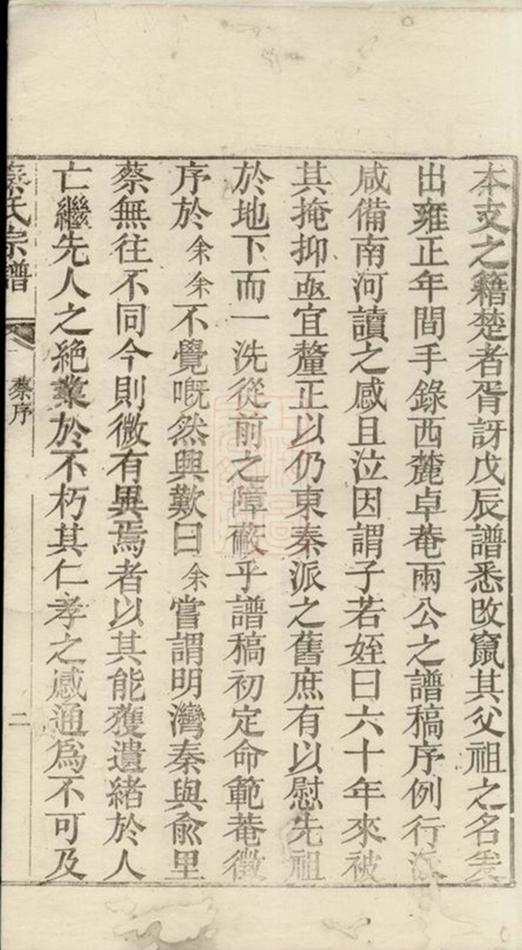 本支之籍楚者胥訝戊辰譜悉改竄其父祖之名爰
出雍正年間手錄西麓卓菴兩公之譜稿序例行派
咸備南河讀之感且泣因謂子若姪曰六十年來被
其掩抑亟宜釐正以仍東秦派之舊庶有以慰先祖
於地下而一洗從前之障蔽乎譜稿初定命範菴徵
序於余余不覺嘅然興歎曰余嘗謂明灣秦與兪里
蔡無往不同今則微有異焉者以其能獲遺緒於人
亡繼先人之絶業於不朽其仁孝之感通爲不可及
氏宗譜
蔡序
二